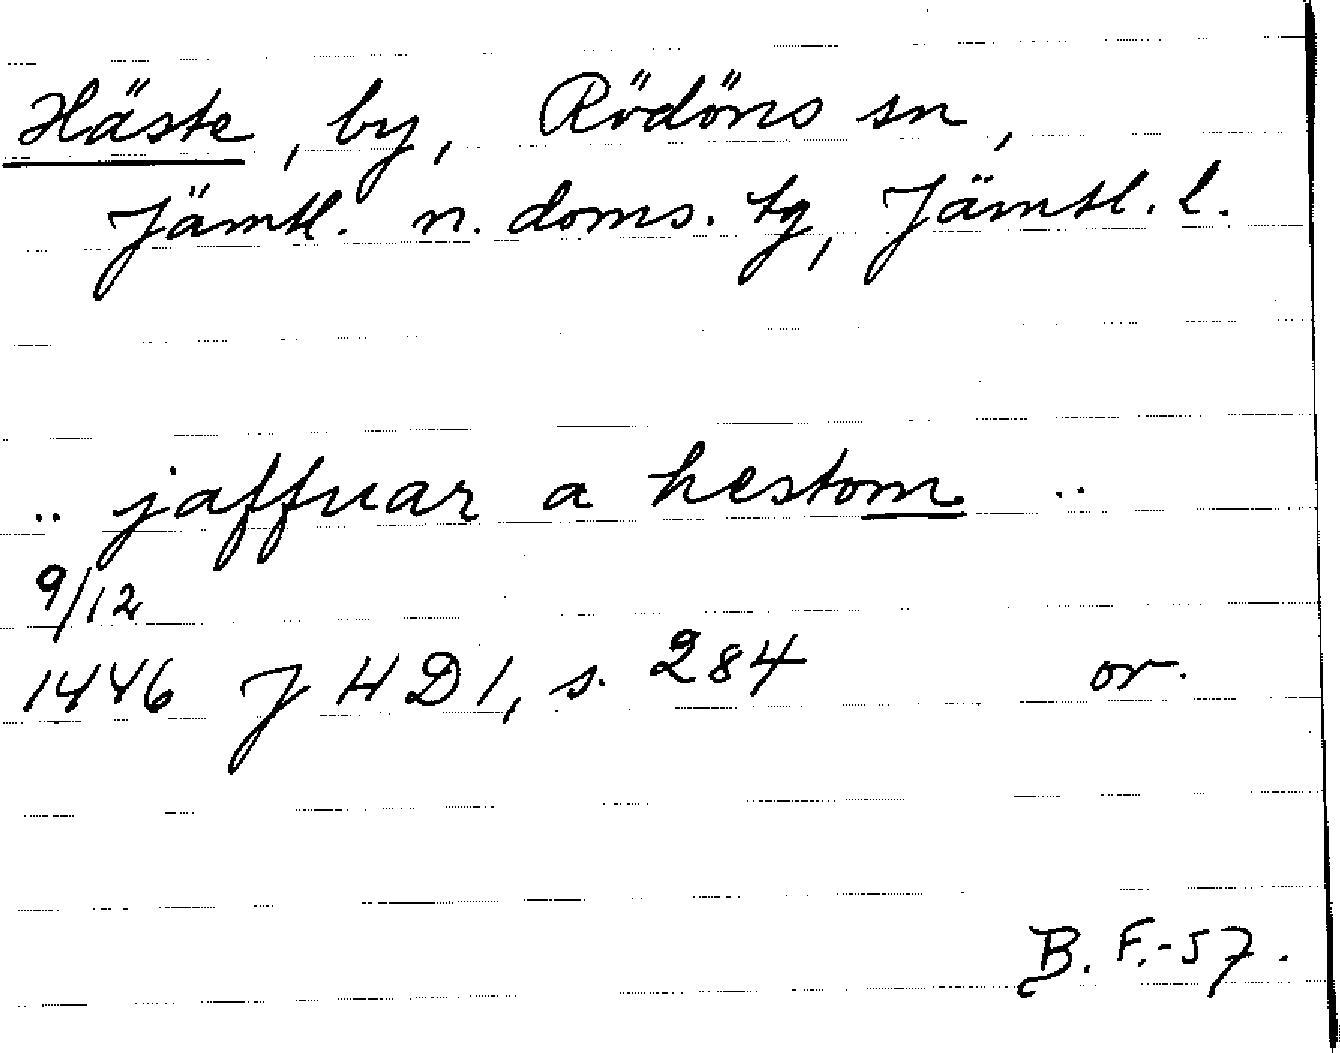 Häste, by, Rödöns sn,
Jämtl. n. doms. tg, Jämtl. l.
.. jaffuar a hestom ..
9/12
1446 J H D 1, s. 284 or.
B. F.-57.